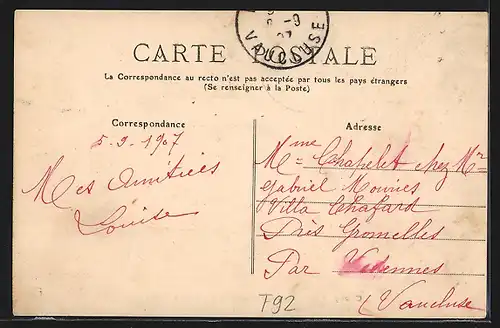 CARTE POSTALE
VAUCLUSE
La Correspondance au recto n'est pas acceptée par tous les pays étrangers
(Se renseigner à la Poste)
Correspondance
Adresse
5-9-1907
Mes Amitiées
Louise
Mme Chapelet chez Mr
Gabriel
Villa Chafard
Près Gromelles
Par Vedennes
(Vaucluse
T92